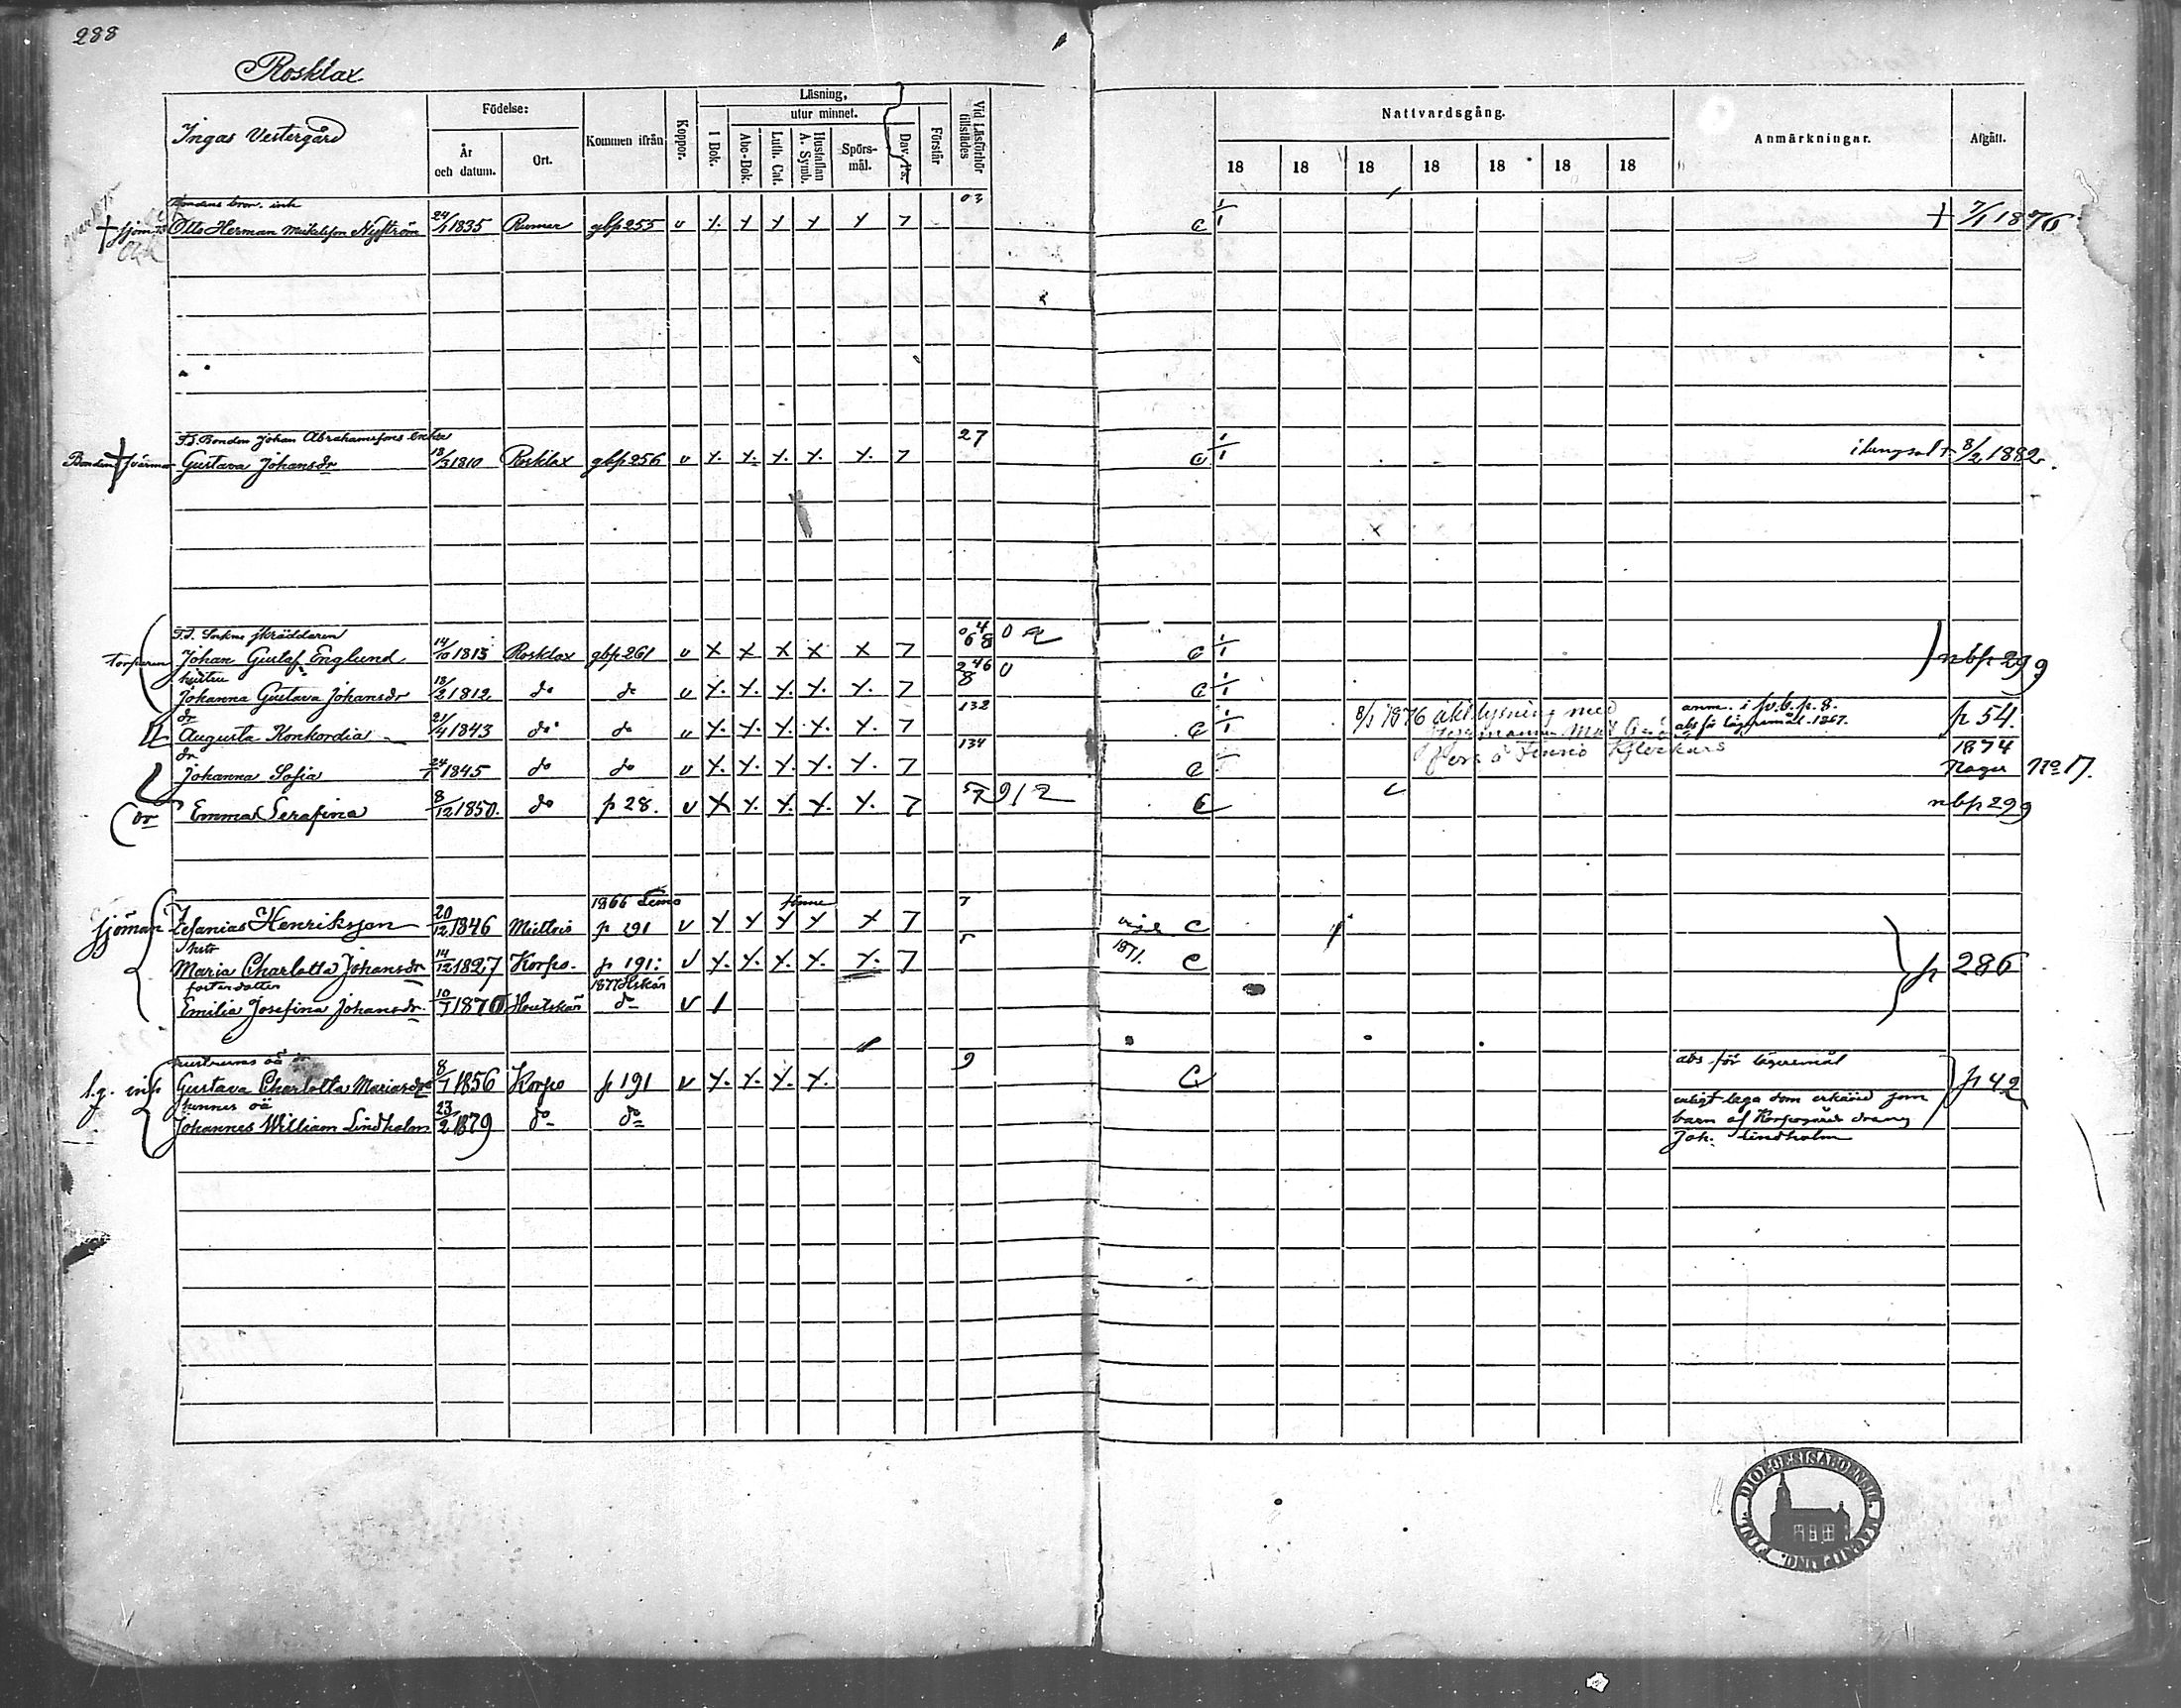 288
Rosklax
Ingas Vestergård
Födelse:
År och datum.
Ort.
Kommen ifrån
Koppor.
Läsning,
utur minnet.
I Bok.
Abc-Bok.
Luth. Cat.
Hustaflan A. Symb.
Spörs-mål.
Dav. Ps.
Förstår
Vid Läsförhör tillstädes
Nattvardsgång.
18 18 18 18 18 18 18
Anmärkningar.
Afgått.
Bondens bror. inh 03
Otto Herman Mickelsson Nyström 24/1 1835 Rumar gbp 255 v x x x x x 7 C 1/1 + 7/1 1876
F.D. Bonden Johan Abrahamssons enka 27
Bondens svärmor Gustava Johansdr 18/3 1810 Rosklax gbp 256 v x x x x x 7 C 1/1 i lungsot + 8/2 1882.
F.d. Sockne skräddaren
torparen Johan Gustaf Englund 14/10 1813 Rosklax gbp 261 v x x x x x 7 C 1/1 nbp 299
hustru
Johanna Gustava Johansdr 18/2 1812 do do v x x x x x 7 C 1/1
dr 132 8/1 1876 äkt. lysning med anm. i p.b.p. 8.
Augusta Konkordia 21/4 1843 do do v x x x x x 7 C 1/1 abs för lägersmål 1867. p 54.
dr 134 1874
Johanna Sofia 24/1 1845 do do v x x x x x 7 C Nagu No 17.
dr Emma Serafina 8/12 1850. do p 28. v x x x x x 7 C nbp 299
1866 Lemo finne 7
sjöman Zefanias Henriksson 20/12 1846 Mietois p 191 v x x x x x 7 C
hstr
Maria Charlotta Johansdr 14/12 1827 Korpo. p 191: v x x x x x 7 1871. C p 286
fosterdotter 1877 Hskär
Emilia Josefina Johansdr. 10/7 1870 Houtskär do v 1
hustruns oä dr 9 abs för lägersmål
inh Gustava Charlotta Mariasdr 8/7 1856 Korpo p 191 v x x x x C p 42
hennes oä enligt laga dom erkänd som
Johannes William Lindholm 23/2 1879 do do barn af Korpogård dräng
Joh. Lindholm